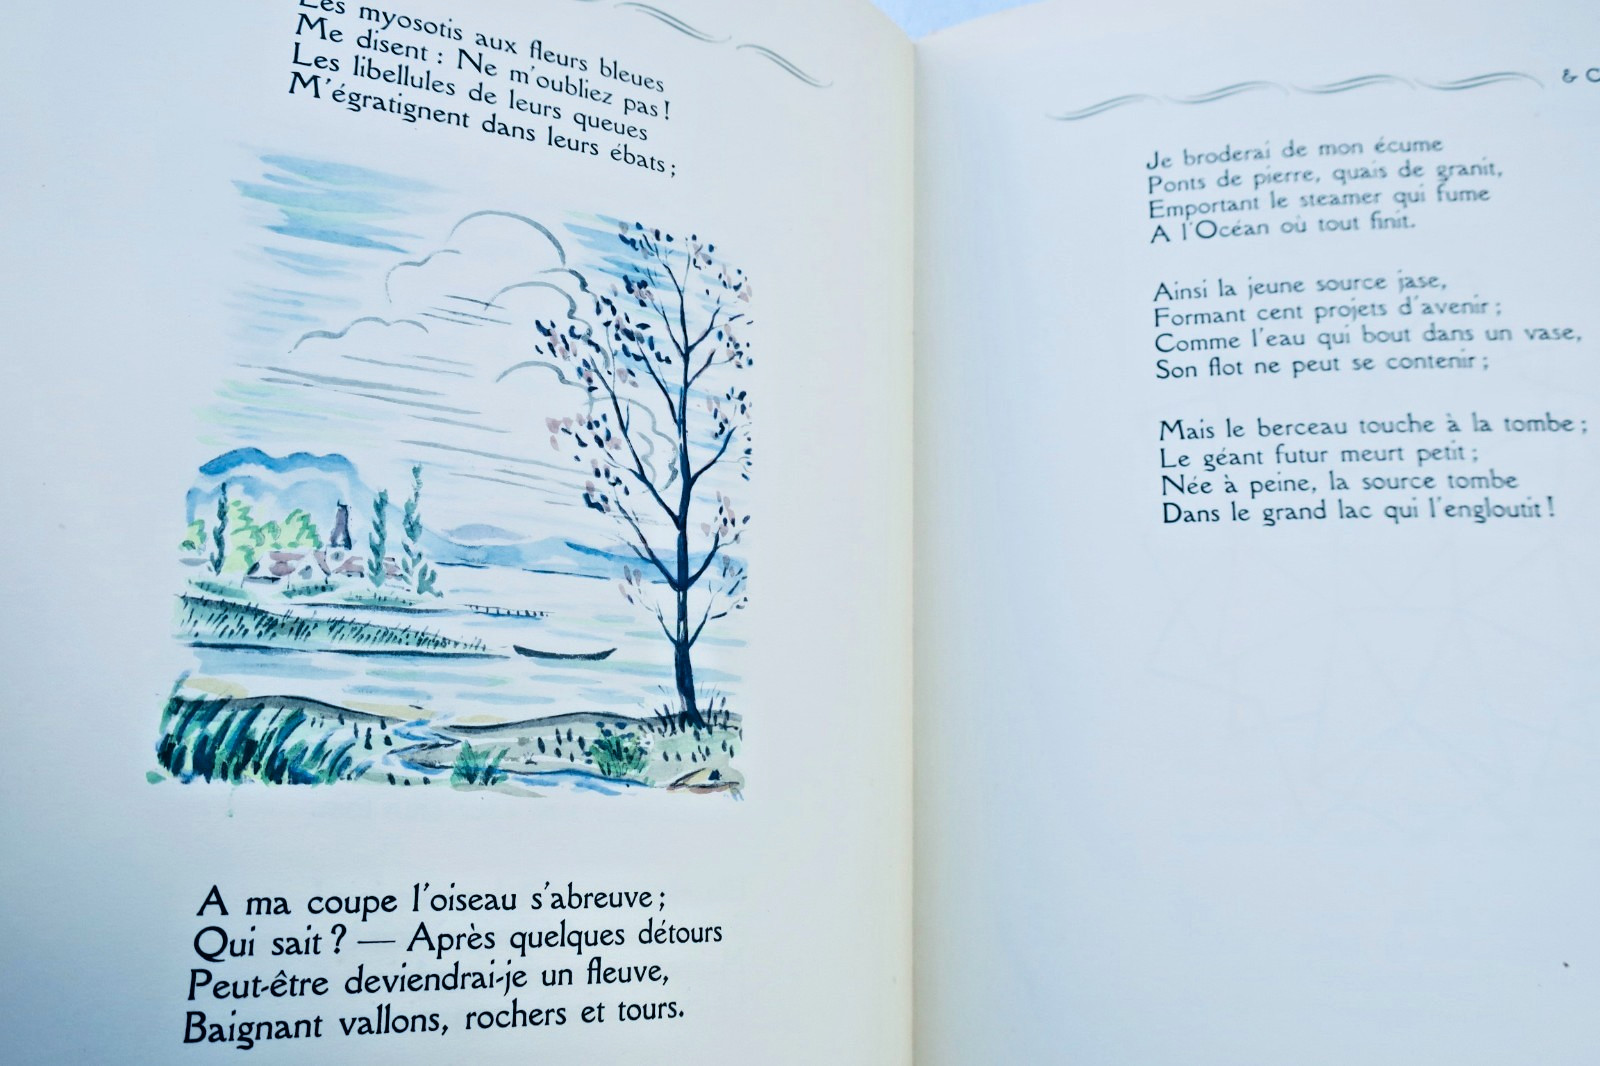 Les myosotis aux fleurs bleues
Me disent : Ne m'oubliez pas !
Les libellules de leurs queues
M'égratignent dans leurs ébats ;
A ma coupe l'oiseau s'abreuve ;
Qui sait ? — Après quelques détours
Peut-être deviendrai-je un fleuve,
Baignant vallons, rochers et tours.
& C
Je broderai de mon écume
Ponts de pierre, quais de granit,
Emportant le steamer qui fume
A l'Océan où tout finit.
Ainsi la jeune source jase,
Formant cent projets d'avenir ;
Comme l'eau qui bout dans un vase,
Son flot ne peut se contenir ;
Mais le berceau touche à la tombe ;
Le géant futur meurt petit ;
Née à peine, la source tombe
Dans le grand lac qui l'engloutit !